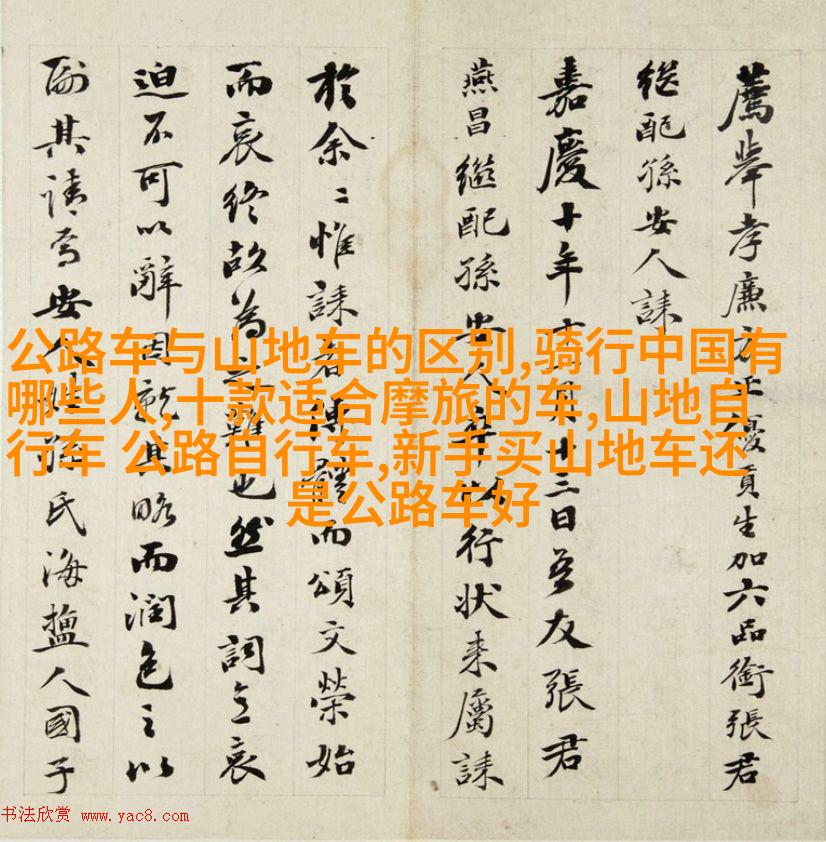 公路车与山地车的区别,骑行中国有
哪些人,十款适合摩旅的车,山地自
行车 公路自行车,新手买山地车还
是公路车好
薦舉孝廉方正優貢生加六品銜張君
繼配孫安人誄
嘉慶十年十月十三日吾友張君
燕昌繼配孫安人卒行状来屬誄
於余〻惟誄者傳體而頌文榮始
而哀終故為之難也然其詞哀
迫不可以辭因就其略而潤色之以
副其請焉安人姓孫氏海鹽人國子
书法欣赏 www.yac8.com